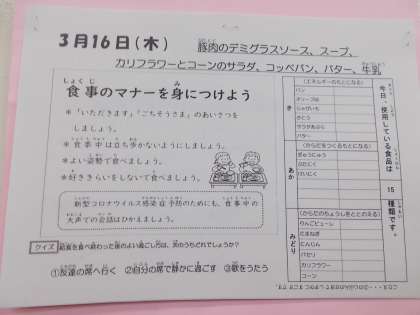 3月16日(木)
豚肉のデミグラスソース、スープ、
カリフラワーとコーンのサラダ、コッペパン、バター、牛乳
食事のマナーを身につけよう
＊「いただきます」「ごちそうさま」のあいさつを
しましょう。
＊食事中は立ち歩かないようにしましょう。
＊よい姿勢で食べましょう。
＊好ききらいをしないで食べましょう。
新型コロナウイルス感染症予防のためにも、食事中の
大声での会話はひかえましょう。
クイズ 給食を食べ終わった後のよい過ごし方は、次のうちどれでしょうか?
①友達の席へ行く ②自分の席で静かに過ごす ③歌をうたう
今日、使用している食品は
15
種類です。
き
(エネルギーのもとになる)
パン
じゃがいも
さとう
サラダあぶら
バター
あか
(からだをつくるもとになる)
ぎゅうにゅう
ぶたにく
みどり
(からだのちょうしをととのえる)
たまねぎ
にんじん
パセリ
カリフラワー
コーン